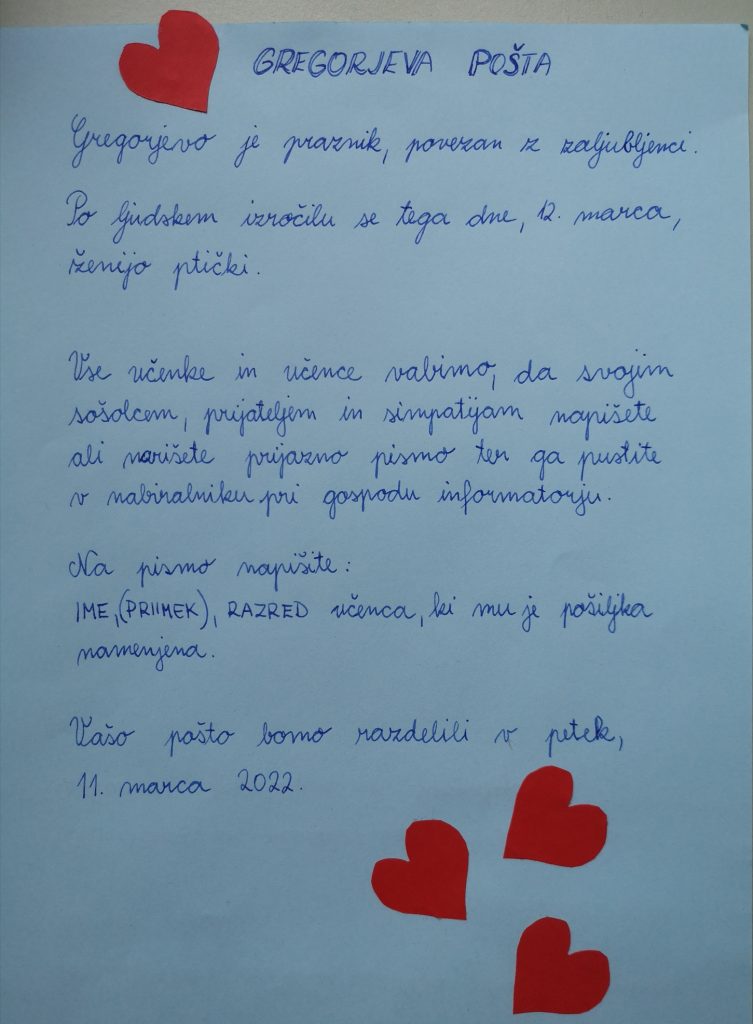 GREGORJEVA POŠTA
Gregorjevo je praznik, povezan z zaljubljenci.
Po ljudskem izročilu se tega dne, 12. marca,
ženijo ptički.
Vse učenke in učence vabimo, da svojim
sošolcem, prijateljem in simpatijam napišete
ali narišete prijazno pismo ter ga pustite
v nabiralniku pri gospodu informatorju.
Na pismo napišite:
IME, (PRIIMEK), RAZRED učenca, ki mu je pošiljka
namenjena.
Vašo pošto bomo razdelili v petek,
11. marca 2022.